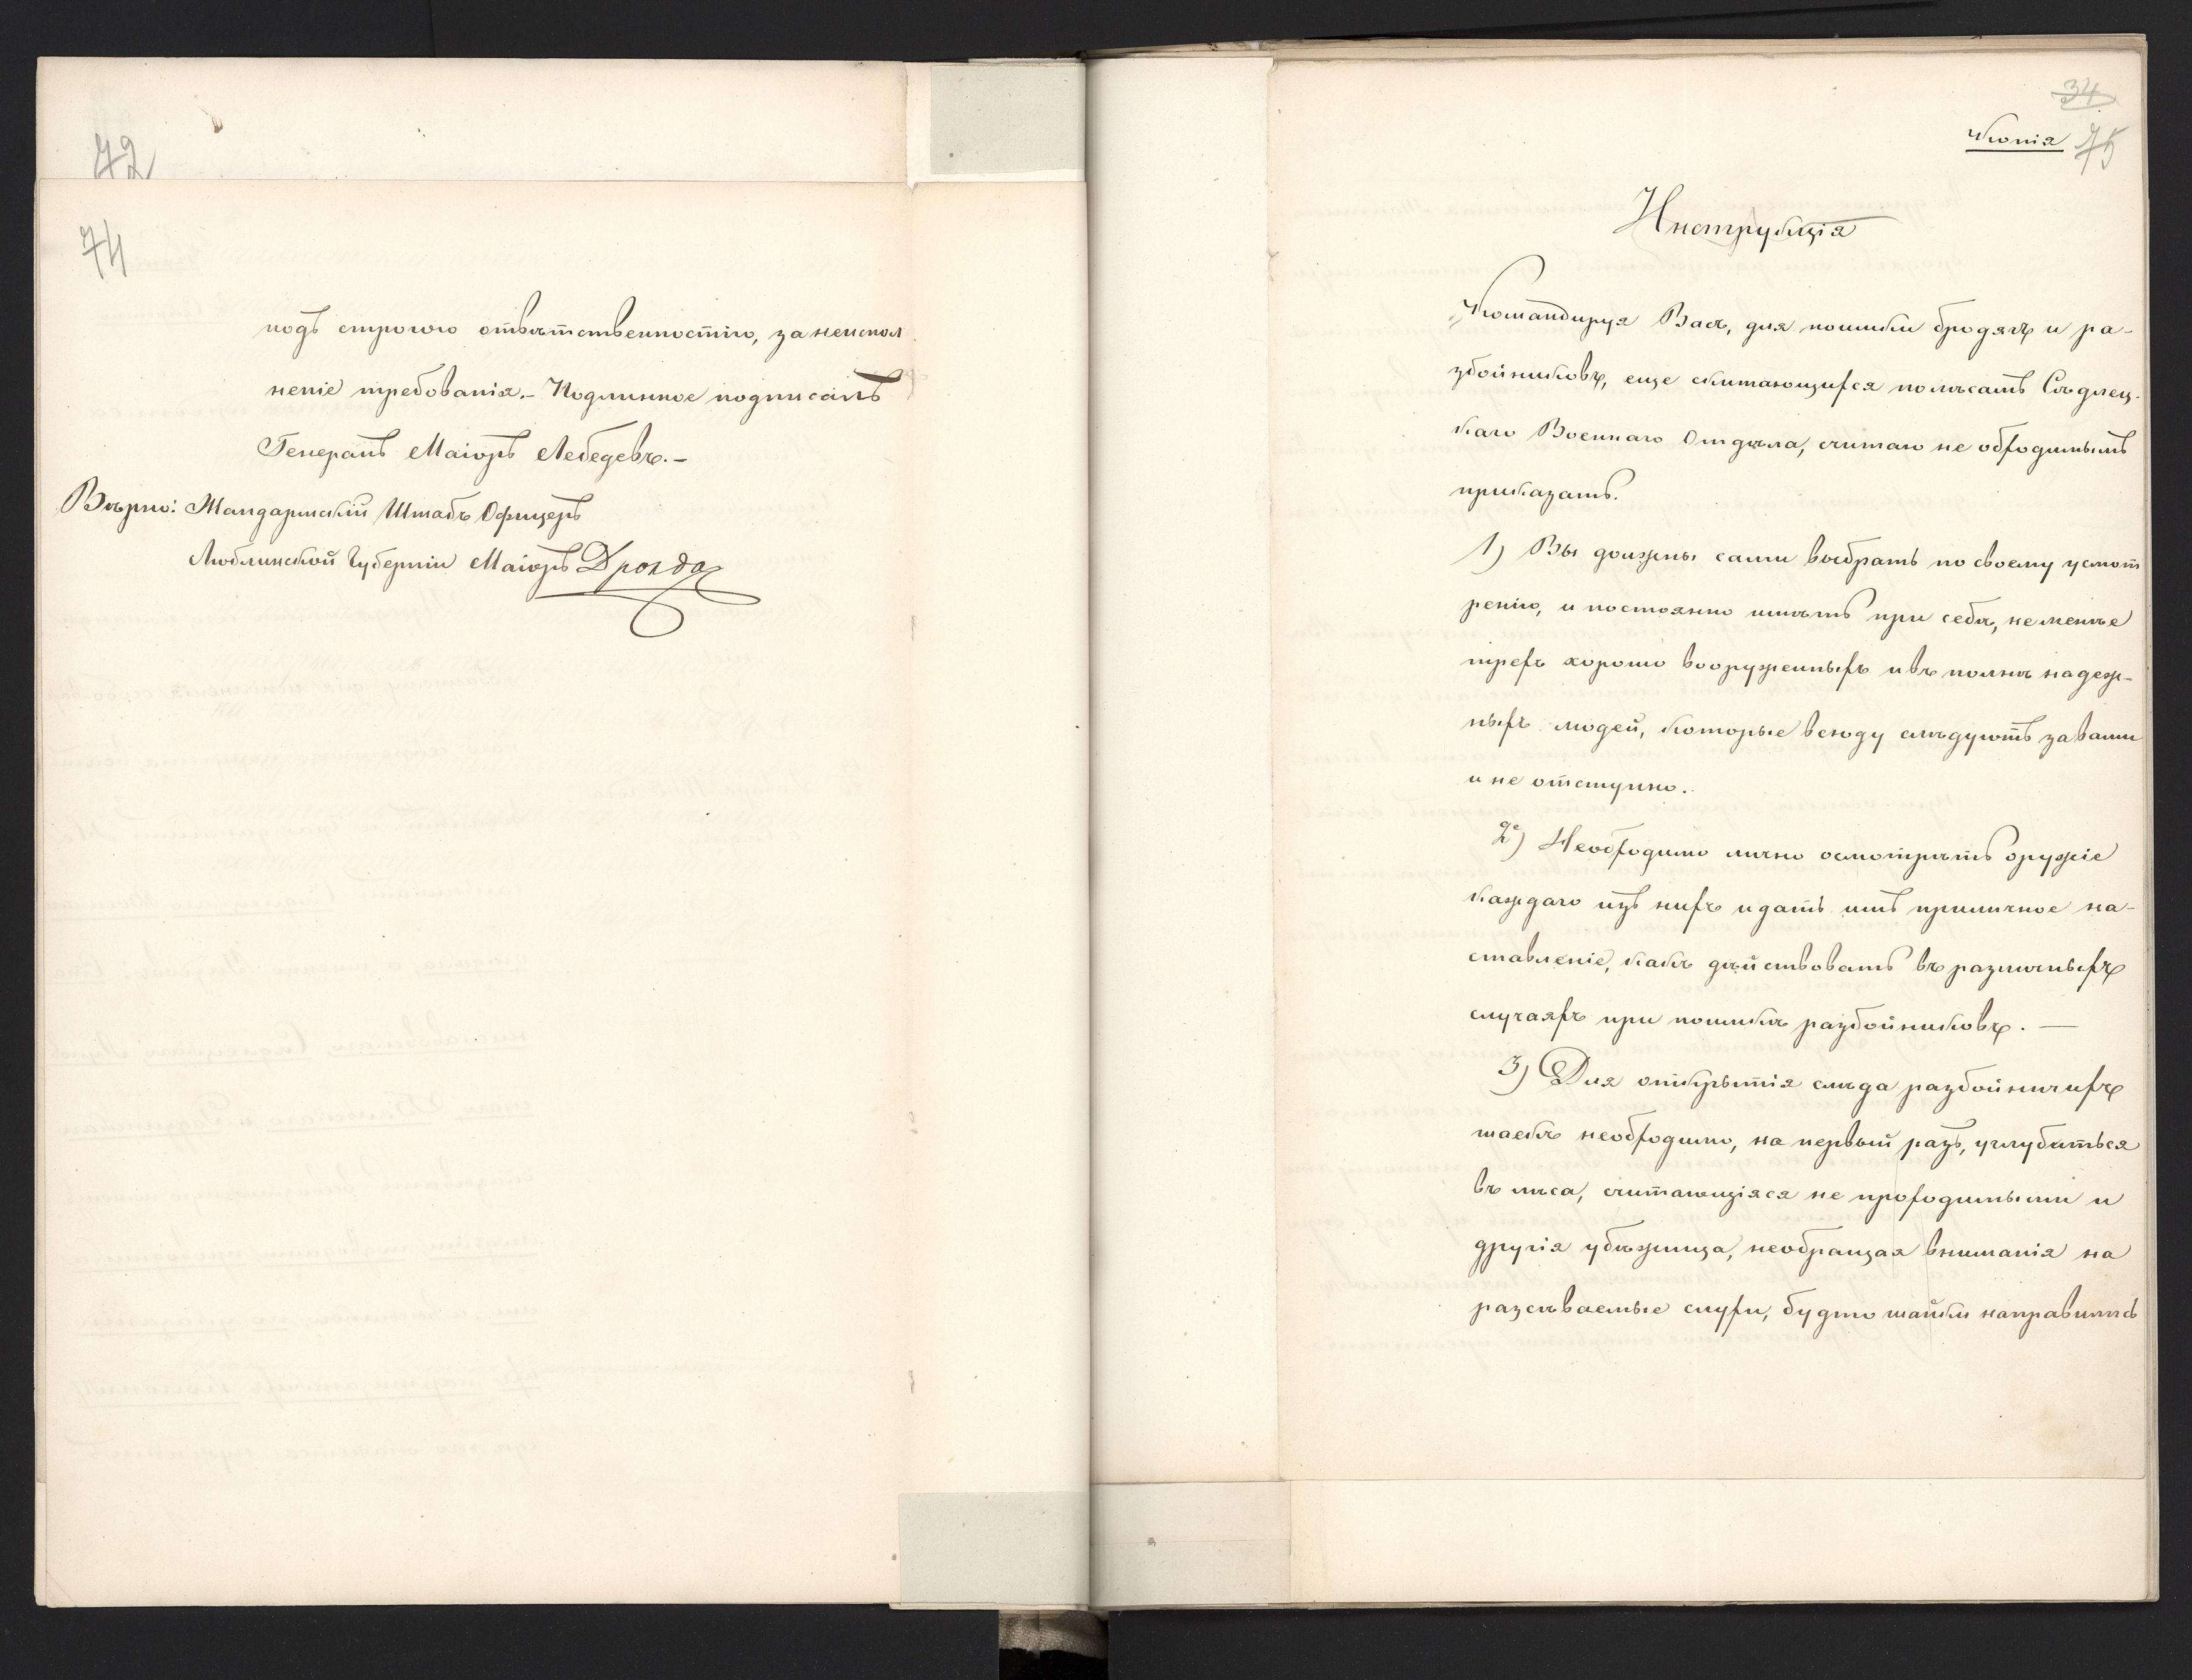 72
74
подъ строгою отвѣтственностію, за неиспол
неніе требованія.- Подлинное подписалъ
Генералъ Маіоръ Лебедевъ.-
Вѣрно: Жандармскій Штабъ Офицеръ
Люблинской Губерніи Маіоръ
34
Копія 75
Инструкція
Командируя Васъ, для поимки бродягъ и ра-
збойниковъ, еще скитающихся по лѣсамъ Сѣдлец-
каго Военнаго Отдѣла, считаю не обходимымъ
приказать.
1) Вы должны сами выбрать по своему усмот
ренію, и постоянно имѣть при себѣ, не менѣе
трехъ хорошо вооруженныхъ и въ полнѣ надеж-
ныхъ людей, которые всюду слѣдуютъ за вами
и не отступно.
2) Необходимо лично осмотрѣть оружіе
каждаго изъ нихъ и дать имъ приличное на-
ставленіе, какъ дѣйствовать въ различныхъ
случаяхъ при поимкѣ разбойниковъ. —
3) Для открытія слѣда разбойничихъ
шаекъ необходимо, на первый разъ, углубиться
въ лѣса, считающіяся не проходимыми и
другія убѣжища, необращая вниманія на
разсѣваемые слухи, будто шайки направились